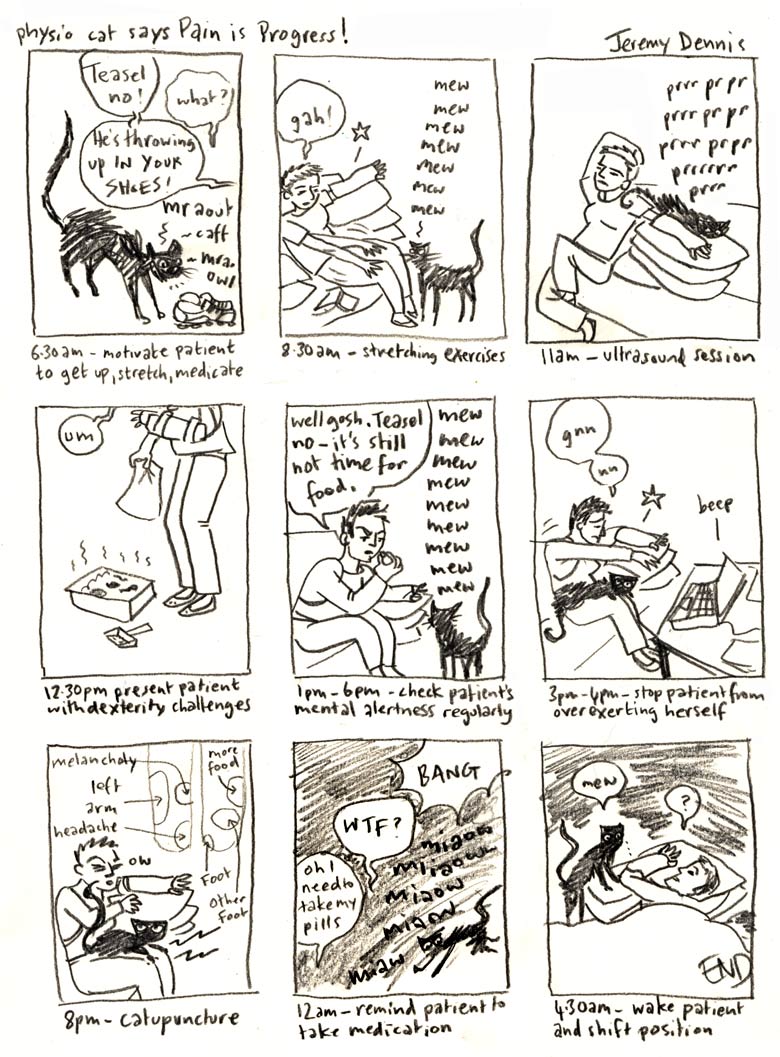 physio cat says Pain is Progress!
Jeremy Dennis
Teasel
no!
what?
He's throwing
up IN YOUR
SHOES!
mraout
~caft
~mra.
owl
6.30am - motivate patient
to get up, stretch, medicate
gah!
mew
mew
mew
mew
mew
mew
mew
8.30am - stretching exercises
prrr pr pr
prrr pr pr
prrr prpr
prrrrrr
prrr
11am - ultrasound session
um
12.30pm present patient
with dexterity challenges
well gosh. Teasel
no - it's still
not time for
food.
mew
mew
mew
mew
mew
mew
mew
mew
mew
1pm - 6pm - check patient's
mental alertness regularly
gnn
nn
beep
3pm - 4pm - stop patient from
overexerting herself
melancholy
left
arm
headache
more
food
ow
Foot
other
Foot
8pm - catupuncture
BANG
WTF?
oh I
need to
take my
pills
miaow
miiaow
miaow
miaow
miaw
12am - remind patient to
take medication
mew
?
END
4.30am - wake patient
and shift position